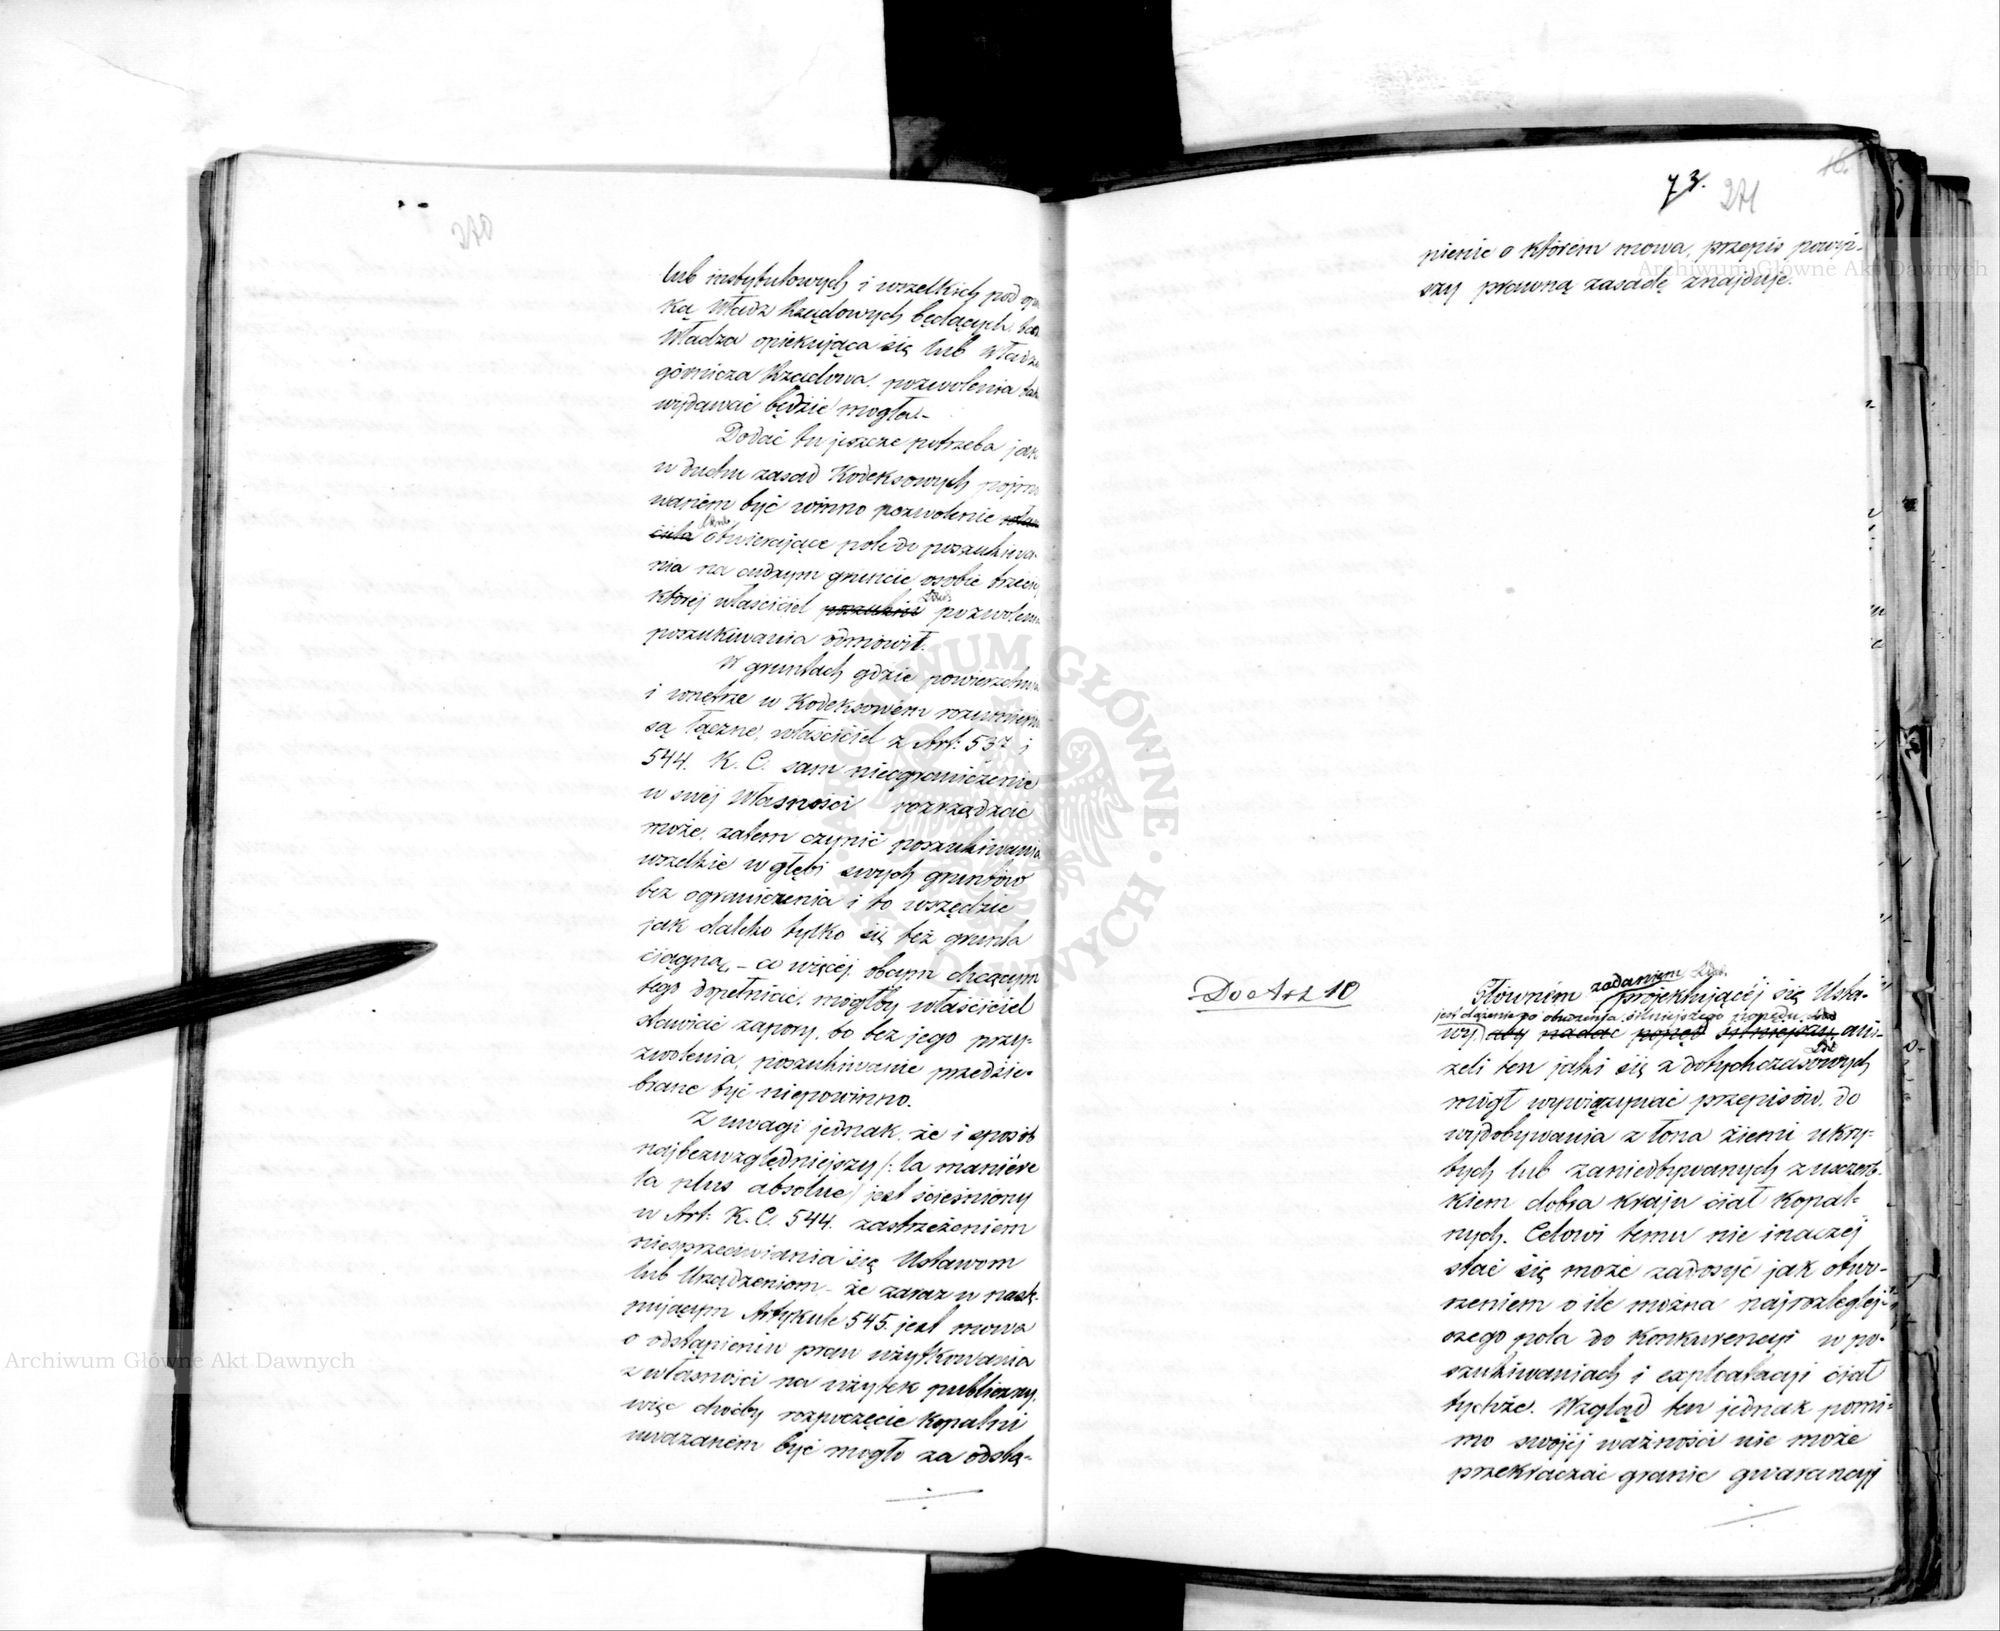 270
lub instytutowych i wszelkich pod opie
ką Władz Rządowych będących,
Władza opiekująca się lub Władza
górnicza Rządowa, pozwolenia
wydawać będzie mogła.–
Dodać tu jeszcze potrzeba jak
w duchu zasad Kodeksowych pojmo
waniem być winno pozwolenie
otwierające pole do poszukiwa-
nia na cudzym gruncie osobie trzeciéj
której właściciel poszukiw pozwolenia
poszukiwania odmówił.
W gruntach gdzie powierzchnia
i wnętrze w Kodeksowém rozumieniu
są łączne, właściciel z Art: 537 i
544. K. C. sam nieograniczenie
w swéj własności rozrządzać
może, zatem czynić poszukiwania
wszelkie w głębi swych gruntów
bez ograniczenia i to wszędzie
jak daleko tylko się też grunta
ciągną, – co więcéj, obcym chcącym
tego dopełniać, mógłby właściciel
stawiać zapory, bo bez jego przy-
zwolenia, poszukiwanie przedsię-
brane być niepowinno.
Z uwagi jednak, że i sposób
najbezwzględniejszy /: la manière
la plus absolue/ jest ścieśniony
w Art: K. C. 544. zastrzeżeniem
niesprzeciwiania się Ustawom
lub Urządzeniom – że zaraz w nastę-
pującym Artykule 545. jest mowa
o odstąpieniu praw użytkowania
z własności na użytek publiczny,
więc choćby rozpoczęcie Kopalni
uważaném być mogło za odstą-
73.
271
16.
pienie o którém mowa, przepis powyż-
szy prawną zasadę znajduje.
Do Art 10
zadaniem
Główném projektującéj się Usta-
jest dążenie do obudzenia silniejszego popędu
wy aby nadać popęd silniejszy ani-
żeli ten jaki się z dotychczasowych
mógł wywiązywać przepisów, do
wydobywania z łona ziemi ukry-
tych lub zaniedbywanych z uszczerb-
kiem dobra kraju ciał kopal-
nych. Celowi temu nie inaczéj
stać się może zadosyć jak otwo-
rzeniem o ile można najrozleglej-
szego pola do Konkurencyi w po-
szukiwaniach i exploatacyi ciał
tychże. Wzgląd ten jednak pomi-
mo swojéj ważności nie może
przekraczać granic gwarancyi
Archiwum Główne Akt Dawnych
Archiwum Główne Akt Dawnych
ARCHIWUM GŁÓWNE AKT DAWNYCH